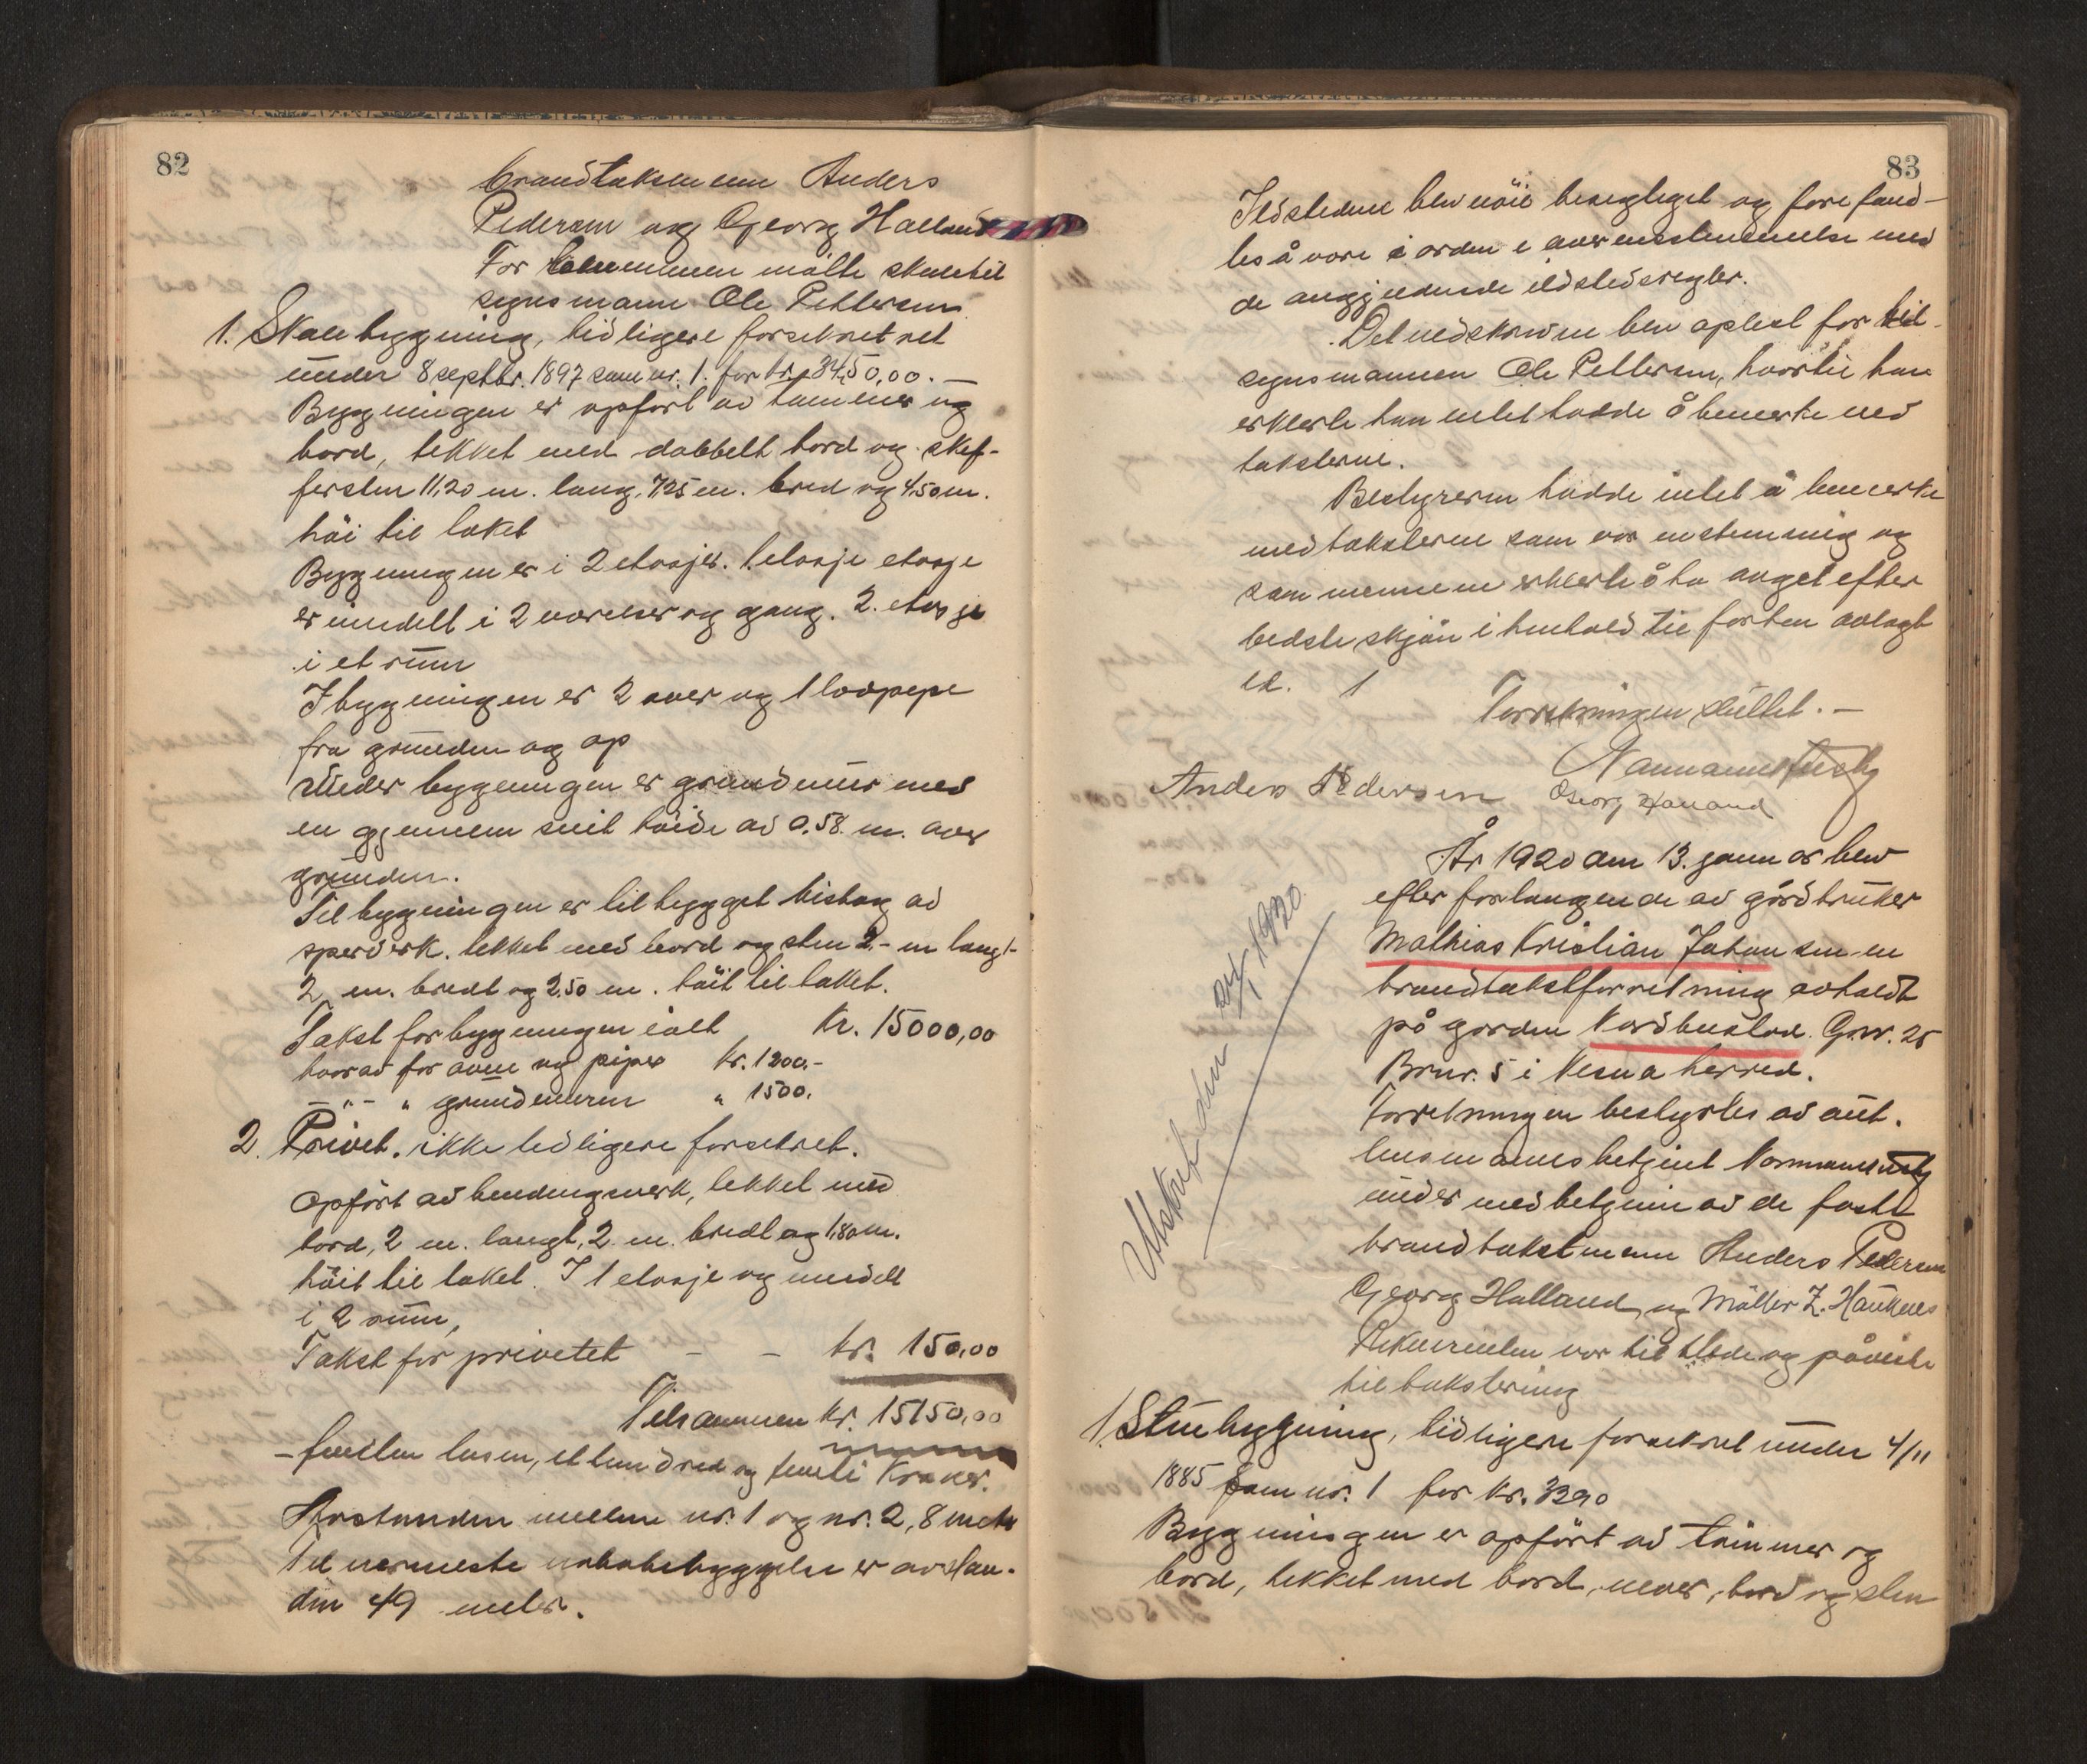 82
brandtaksmenn Anders
Pedersen og Georg Halland
For kommunen mötte skoletil
synsmann Ole Pettersen
1. Skolebygning, tidligere forsikret ret
under 8 septbr. 1897 som nr. 1. for kr. 3450,00. –
Bygningen er opfört av tömmer og
bord, tekket med dobbelt bord og skif-
fersten 11,20 m. lang, 7,25 m. bred og 4,50 m.
höi til taket
Bygningen er i 2 etasjer. 1 etasje etasje
er inndelt i 2 værelser og gang. 2. etasje
i et rum
I bygningen er 2 ovner og 1 lodpipe
fra grunden og op
Under bygningen er grundmur med
en gjennemsnit höide av 0,58 m. over
grunden.
Til bygningen er tilbygget bislag av
sperverk. tekket med bord og sten 2,- m langt-
2 m. bredt og 2,50 m. höit til taket.
Takst for bygningen ialt kr. 15000,00
hvorav for ovne og piper kr. 1200.-
– " – " grundmuren " 1500.
2. Privet. ikke tidligere forsikret.
Opfört av bendingsverk, tekket med
bord, 2 m. langt, 2 m. bredt og 1,80 m.
höit til taket. I 1 etasje og inndelt
i 2 rum,
Takst for privetet – – kr. 150,00
Tilsammen kr. 15150,00
– femten tusen, et hundred og femti Kroner.
Avstanden mellem nr. 1 og nr. 2, 8 meter
Til nermeste nabobebyggelse er avstan-
den 49 meter.
83
Ildstedene blev nöie besigtiget og forefand-
tes å være i orden i overensstemmelse med
de angjeldende ildstedsregler.
Det nedskrevne blev oplest for til-
synsmannen Ole Pettersen, hvortil han
erklerte han intet hadde å bemerke ved
taksterne.
Bestyreren hadde intet å bemerke
med taksterne som var enstemmig og
som mennene erklerte å ha avget efter
bedste skjön i henhold til forhen avlagt
ed. 1
Forretningen sluttet. –
Anders Pedersen
Georg Halland
År 1920 den 13. januar blev
efter forlangende av gårdbruker
Mathias Kristian Johansen en
brandtakstforretning avholdt
på gården Nordbustad. G.nr. 25
Brnr. 5 i Nesna herred.
Forretningen bestyrtes av aut.
lensmannsbetjent
under medbetjening av de faste
brandtakstmenn Anders Pedersen
Georg Halland og Möller Z. Hauknes
Rekvirenten var tilstede og påviste
til taksering
Utskrift den 24/1 1920
1. Stuebygning, tidligere forsikret under 4/11
1885 som nr. 1 for kr. 3290
Bygningen er opfört av tömmer og
bord, tekket med bord, never, bord og sten